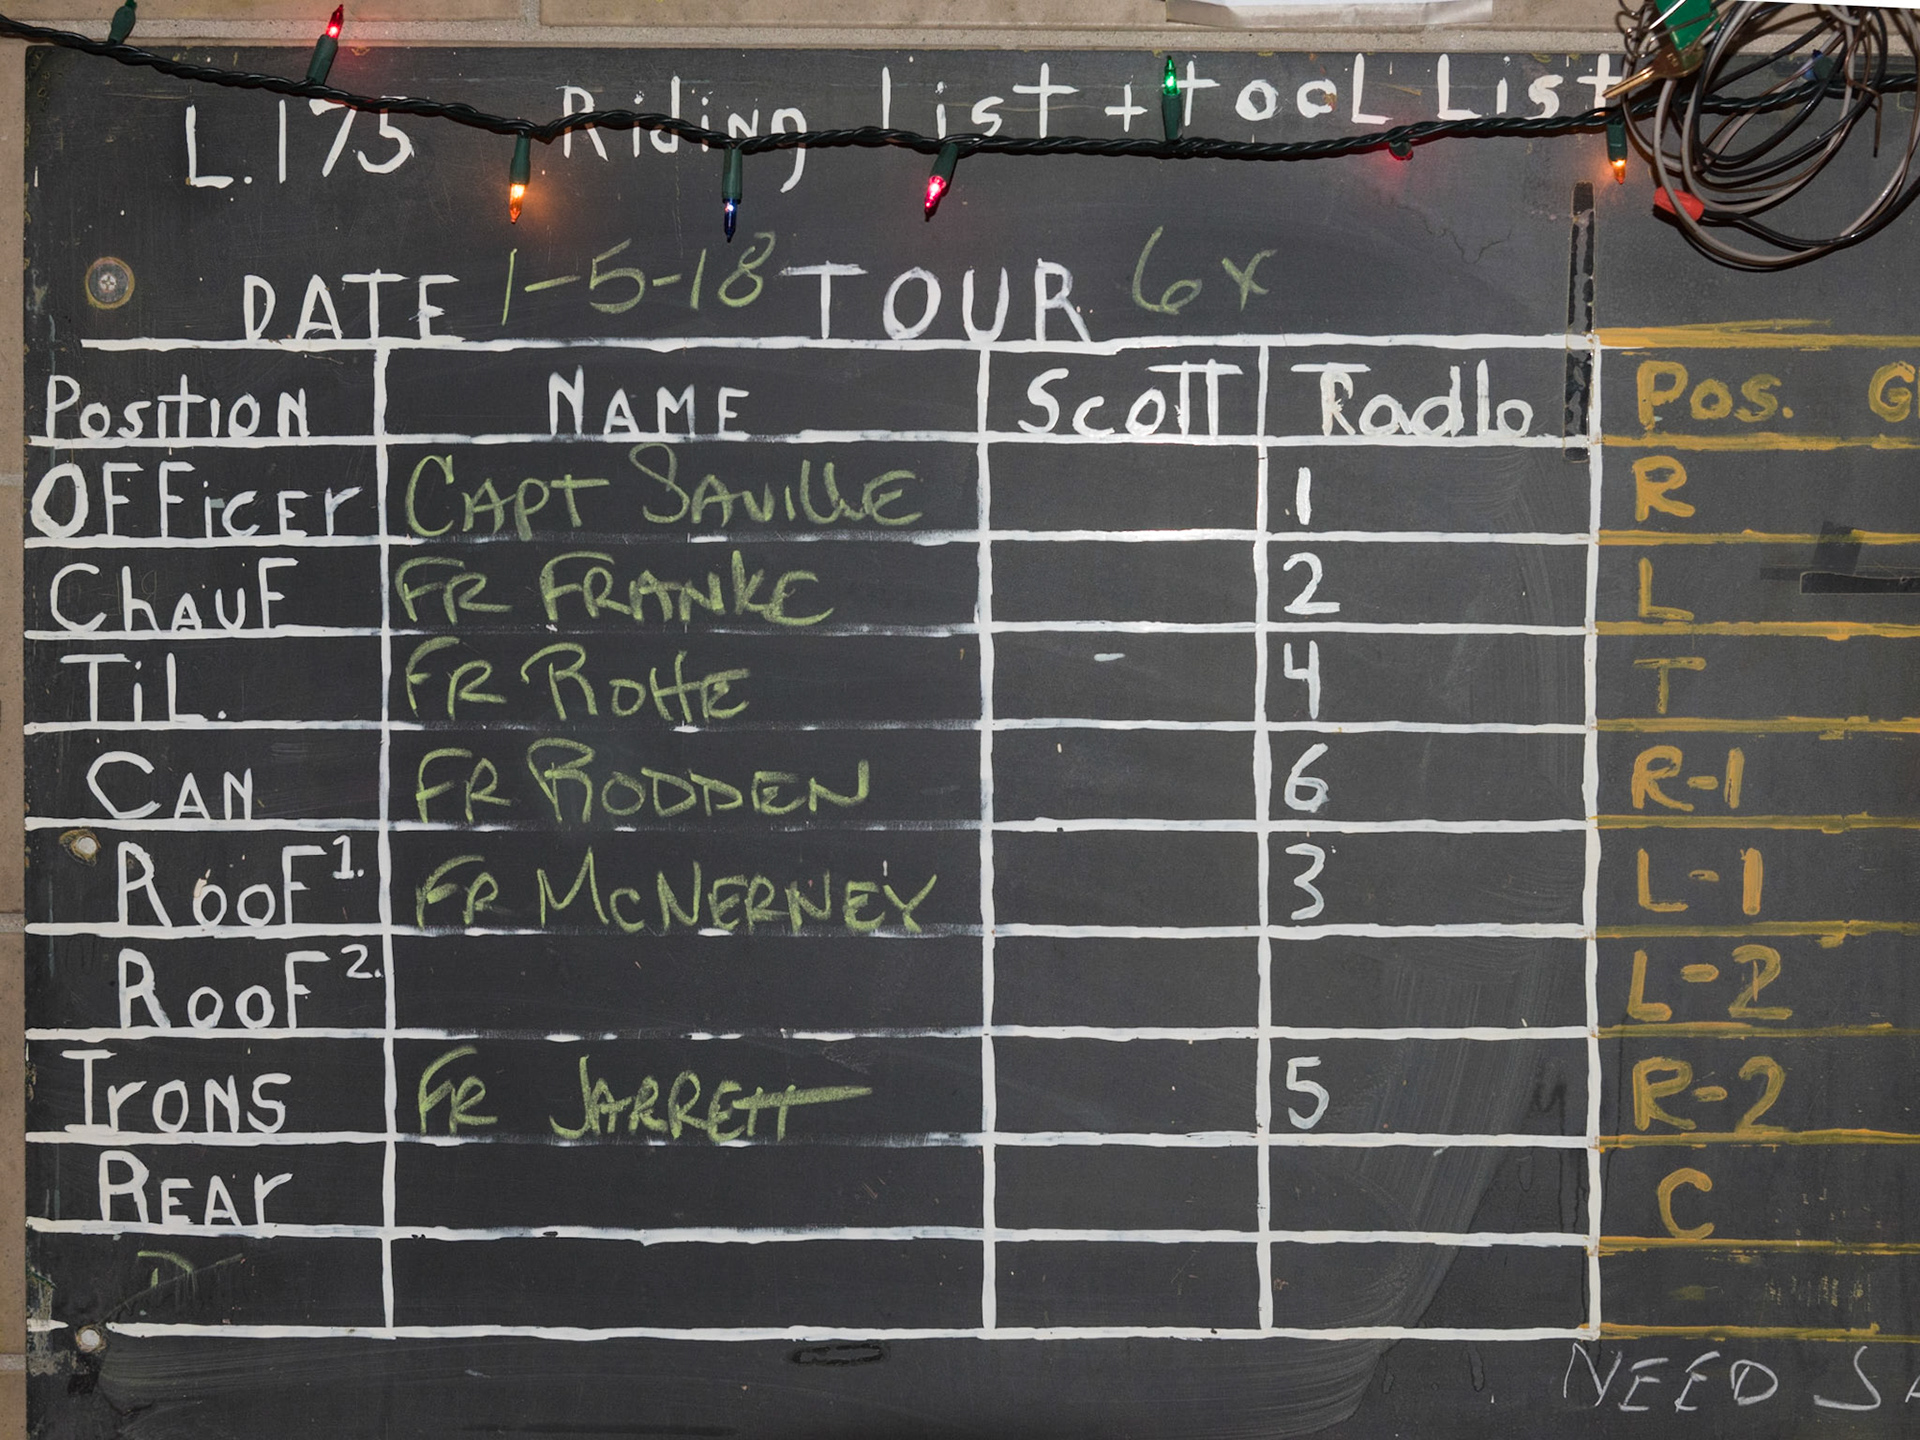 L.175 Riding List + tool List
DATE 1-5-18 TOUR 6x
Position NAME Scott Radio Pos.
OFFicer CAPT SAVILLE 1 R
ChAUF FR FRANKE 2 L
TiL. FR ROHE 4 T
CAN FR RODDEN 6 R-1
RooF 1. FR McNERNEY 3 L-1
RooF 2. L-2
Irons FR JARRETT 5 R-2
REAr C
NEED